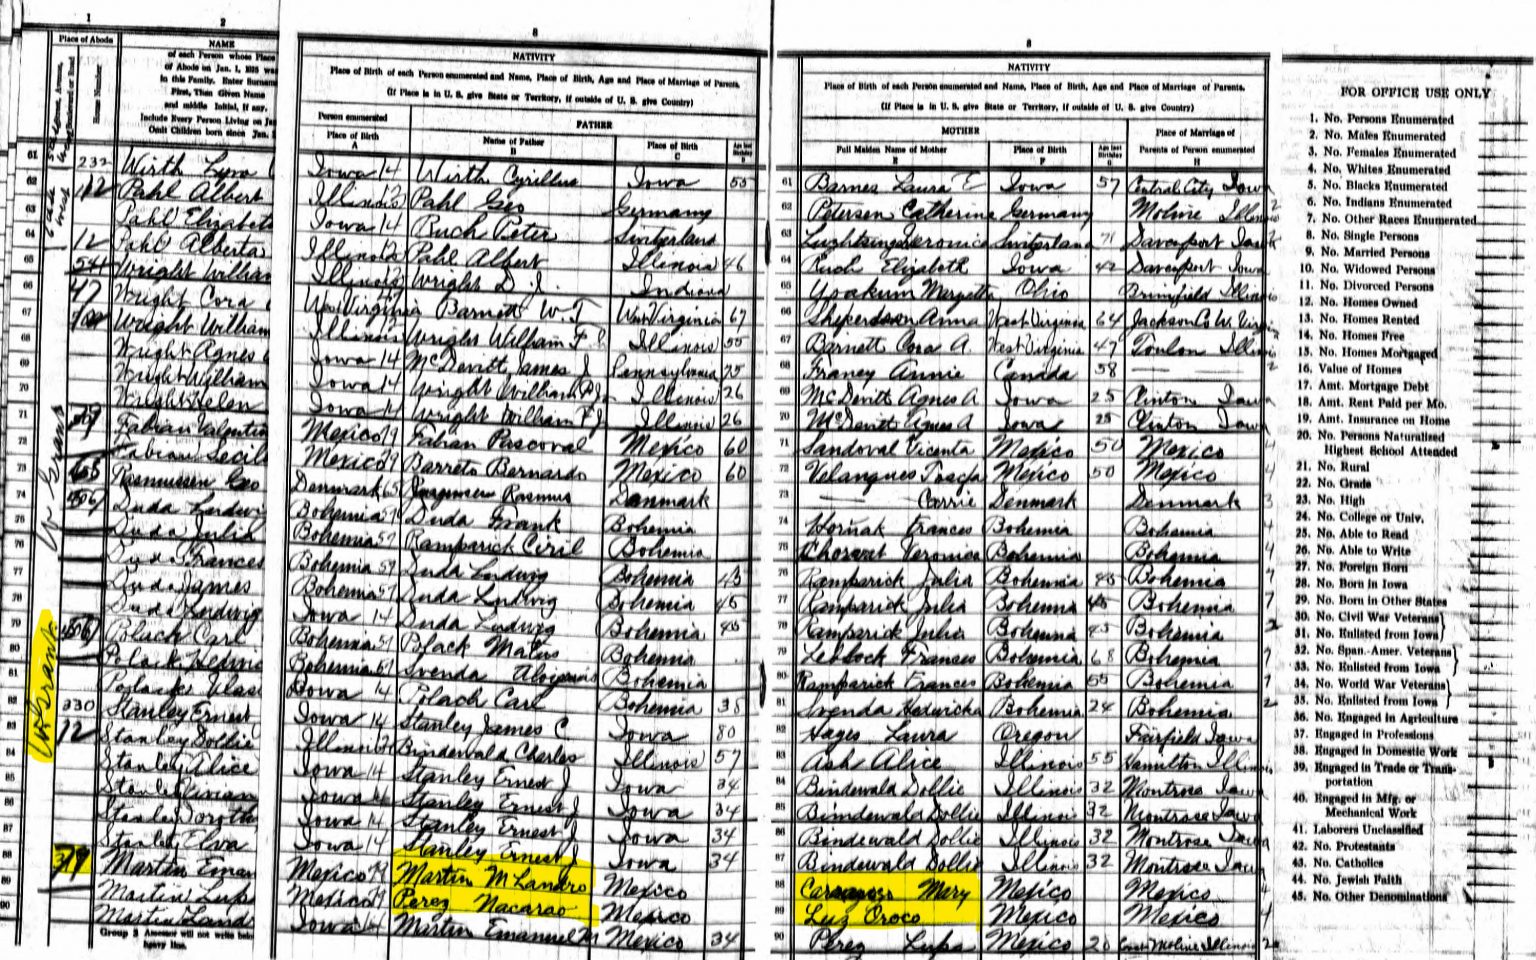 1
2
8
8
Place of Abode
NAME
of each Person whose Place
of Abode on Jan. 1, 1925 was
in this Family. Enter Surname
First, Then Given Name
and middle Initial, if any.
Include Every Person Living on Jan
Omit Children born since Jan. 1
House Number
NATIVITY
Place of Birth of each Person enumerated and Name, Place of Birth, Age and Place of Marriage of Parents.
(If Place is in U. S. give State or Territory, if outside of U. S. give Country)
Person enumerated
FATHER
Place of Birth
A
Name of Father
B
Place of Birth
C
Age last Birthday
D
NATIVITY
Place of Birth of each Person enumerated and Name, Place of Birth, Age and Place of Marriage of Parents.
(If Place is in U. S. give State or Territory, if outside of U. S. give Country)
MOTHER
Place of Marriage of
Full Maiden Name of Mother
E
Place of Birth
F
Age last Birthday
G
Parents of Person enumerated
H
61 232 Wirth Lyra Iowa 14 Wirth Cyrillus Iowa 55 61 Barnes Laura E Iowa 57 Central City Iowa
62 112 Pahl Albert Illinois 12 Pahl Geo Germany 62 Petersen Catherine Germany Moline Illinois 2
63 Pahl Elizabeth Iowa 14 Ruch Peter Switzerland 63 Veronica Switzerland 71 Davenport Iowa
64 12 Pahl Alberta Illinois 12 Pahl Albert Illinois 46 64 Ruch Elizabeth Iowa 42 Davenport Iowa
65 541 Wright William Illinois 12 Wright D. J. Indiana 65 Yoakum Ohio Brimfield Illinois
66 47 Wright Cora West Virginia 47 Barnett W. T West Virginia 67 66 Anna West Virginia 64 Jackson Co W. Virginia
67 Wright William Illinois 12 Wright William F Illinois 55 67 Barnett Cora A. West Virginia 47 Toulon Illinois
68 Wright Agnes Iowa 14 McDevitt James J Pennsylvania 75 68 Franey Annie Canada 58 2
69 Wright William Iowa 14 Wright William F Jr Illinois 26 69 McDevitt Agnes A Iowa 25 Clinton Iowa
70 Wright Helen Iowa 14 Wright William F Jr Illinois 26 70 McDevitt Agnes A Iowa 25 Clinton Iowa
71 Fabian Valentin Mexico 79 Fabian Pascoval Mexico 60 71 Sandoval Vicenta Mexico 50 Mexico 4
72 Fabian Cecil Mexico 79 Barreto Bernardo Mexico 60 72 Velanques Mexico 50 Mexico 4
73 Rasmussen Geo Denmark 65 Rasmus Danmark 73 Carrie Denmark Denmark 3
74 1506 Duda Ludwig Bohemia 59 Duda Frank Bohemia 74 Hornak Frances Bohemia Bohemia 4
75 Duda Julia Bohemia 59 Ramparick Ciril Bohemia 75 Veronica Bohemia Bohemia 4
76 Duda Frances Bohemia 59 Duda Ludwig Bohemia 45 76 Ramparick Julia Bohemia 45 Bohemia 4
77 Duda James Bohemia 59 Duda Ludwig Bohemia 45 77 Ramparick Julia Bohemia 45 Bohemia 7
78 Duda Ludwig Iowa 14 Duda Ludwig Bohemia 45 78 Ramparick Julia Bohemia 45 Bohemia 2
79 1506 Polach Carl Bohemia 59 Black Bohemia 79 Frances Bohemia 68 Bohemia 7
80 Polack Hedwic Bohemia 59 Svenda Bohemia 80 Ramparick Frances Bohemia 55 Bohemia 7
81 Polack Iowa 14 Polach Carl Bohemia 38 81 Svenda Hedwicka Bohemia 24 Bohemia 2
82 330 Stanley Ernest Iowa 14 Stanley James C Iowa 80 82 Hayes Laura Oregon Fairfield Iowa
83 12 Stanley Dollie Illinois 26 Bindewald Charles Illinois 57 83 Ash Alice Illinois 55 Hamilton Illinois
84 Stanley Alice Iowa 14 Stanley Ernest J Iowa 34 84 Bindewald Dollie Illinois 32 Montrose Iowa
85 Stanley Vivian Iowa 14 Stanley Ernest J Iowa 34 85 Bindewald Dollie Illinois 32 Montrose Iowa
86 Stanley Doroth Iowa 14 Stanley Ernest J Iowa 34 86 Bindewald Dollie Illinois 32 Montrose Iowa
87 Stanley Elva Iowa 14 Stanley Ernest J Iowa 34 87 Bindewald Dollie Illinois 32 Montrose Iowa
88 379 Martin Eman Mexico 79 Martin M Landro Mexico 88 Mary Mexico Mexico 4
89 Martin Lupe Mexico 79 Perez Nacarao Mexico 89 Luz Oroco Mexico Mexico 4
90 Martin Lando Iowa 14 Martin Emanuel M Mexico 34 90 Perez Lupa Mexico 20 East Moline Illinois 2
W Grant
W Grant
Group 2 Assessor will not write below
heavy line.
FOR OFFICE USE ONLY
1. No. Persons Enumerated
2. No. Males Enumerated
3. No. Females Enumerated
4. No. Whites Enumerated
5. No. Blacks Enumerated
6. No. Indians Enumerated
7. No. Other Races Enumerated
8. No. Single Persons
9. No. Married Persons
10. No. Widowed Persons
11. No. Divorced Persons
12. No. Homes Owned
13. No. Homes Rented
14. No. Homes Free
15. No. Homes Mortgaged
16. Value of Homes
17. Amt. Mortgage Debt
18. Amt. Rent Paid per Mo.
19. Amt. Insurance on Home
20. No. Persons Naturalized
Highest School Attended
21. No. Rural
22. No. Grade
23. No. High
24. No. College or Univ.
25. No. Able to Read
26. No. Able to Write
27. No. Foreign Born
28. No. Born in Iowa
29. No. Born in Other States
30. No. Civil War Veterans
31. No. Enlisted from Iowa
32. No. Span.-Amer. Veterans
33. No. Enlisted from Iowa
34. No. World War Veterans
35. No. Enlisted from Iowa
36. No. Engaged in Agriculture
37. Engaged in Professions
38. Engaged in Domestic Work
39. Engaged in Trade or Trans-
portation
40. Engaged in Mfg. or
Mechanical Work
41. Laborers Unclassified
42. No. Protestants
43. No. Catholics
44. No. Jewish Faith
45. No. Other Denominations